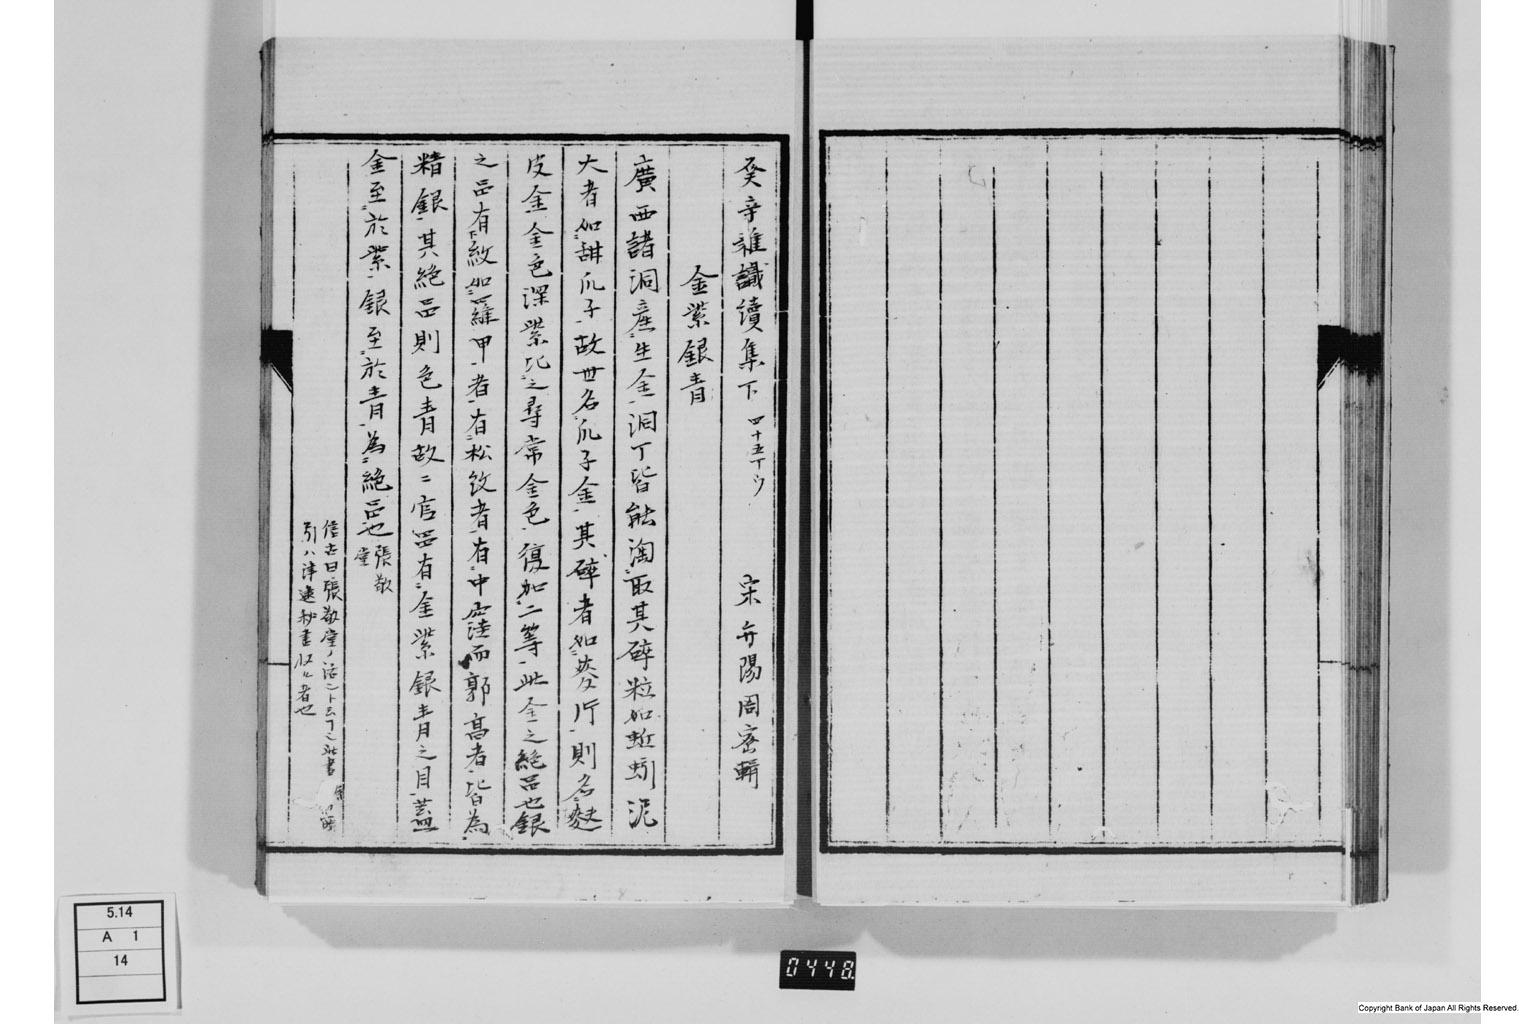 癸辛雜識續集下 四十五丁ウ 宋弁陽周密輯
金紫銀青
廣西諸洞産生金洞丁皆能淘取其碎粒如蚯蚓泥
大者如甜瓜子故世名瓜子金其碎者如麥片則名麩
皮金金色深紫比之尋常金色復加二等此金之絶品也銀
之品有紋如羅甲者有松紋者有中窪而郭高者皆為
精銀其絶品則色青故二官品有金紫銀青之目蓋
金至於紫銀至於青為絶品也 張敬堂
信古曰張敬堂ノ話ニト云丁ハ此書
引ハ津逮秘書収ル者也
5.14
A 1
14
0448
Copyright Bank of Japan All Rights Reserved.